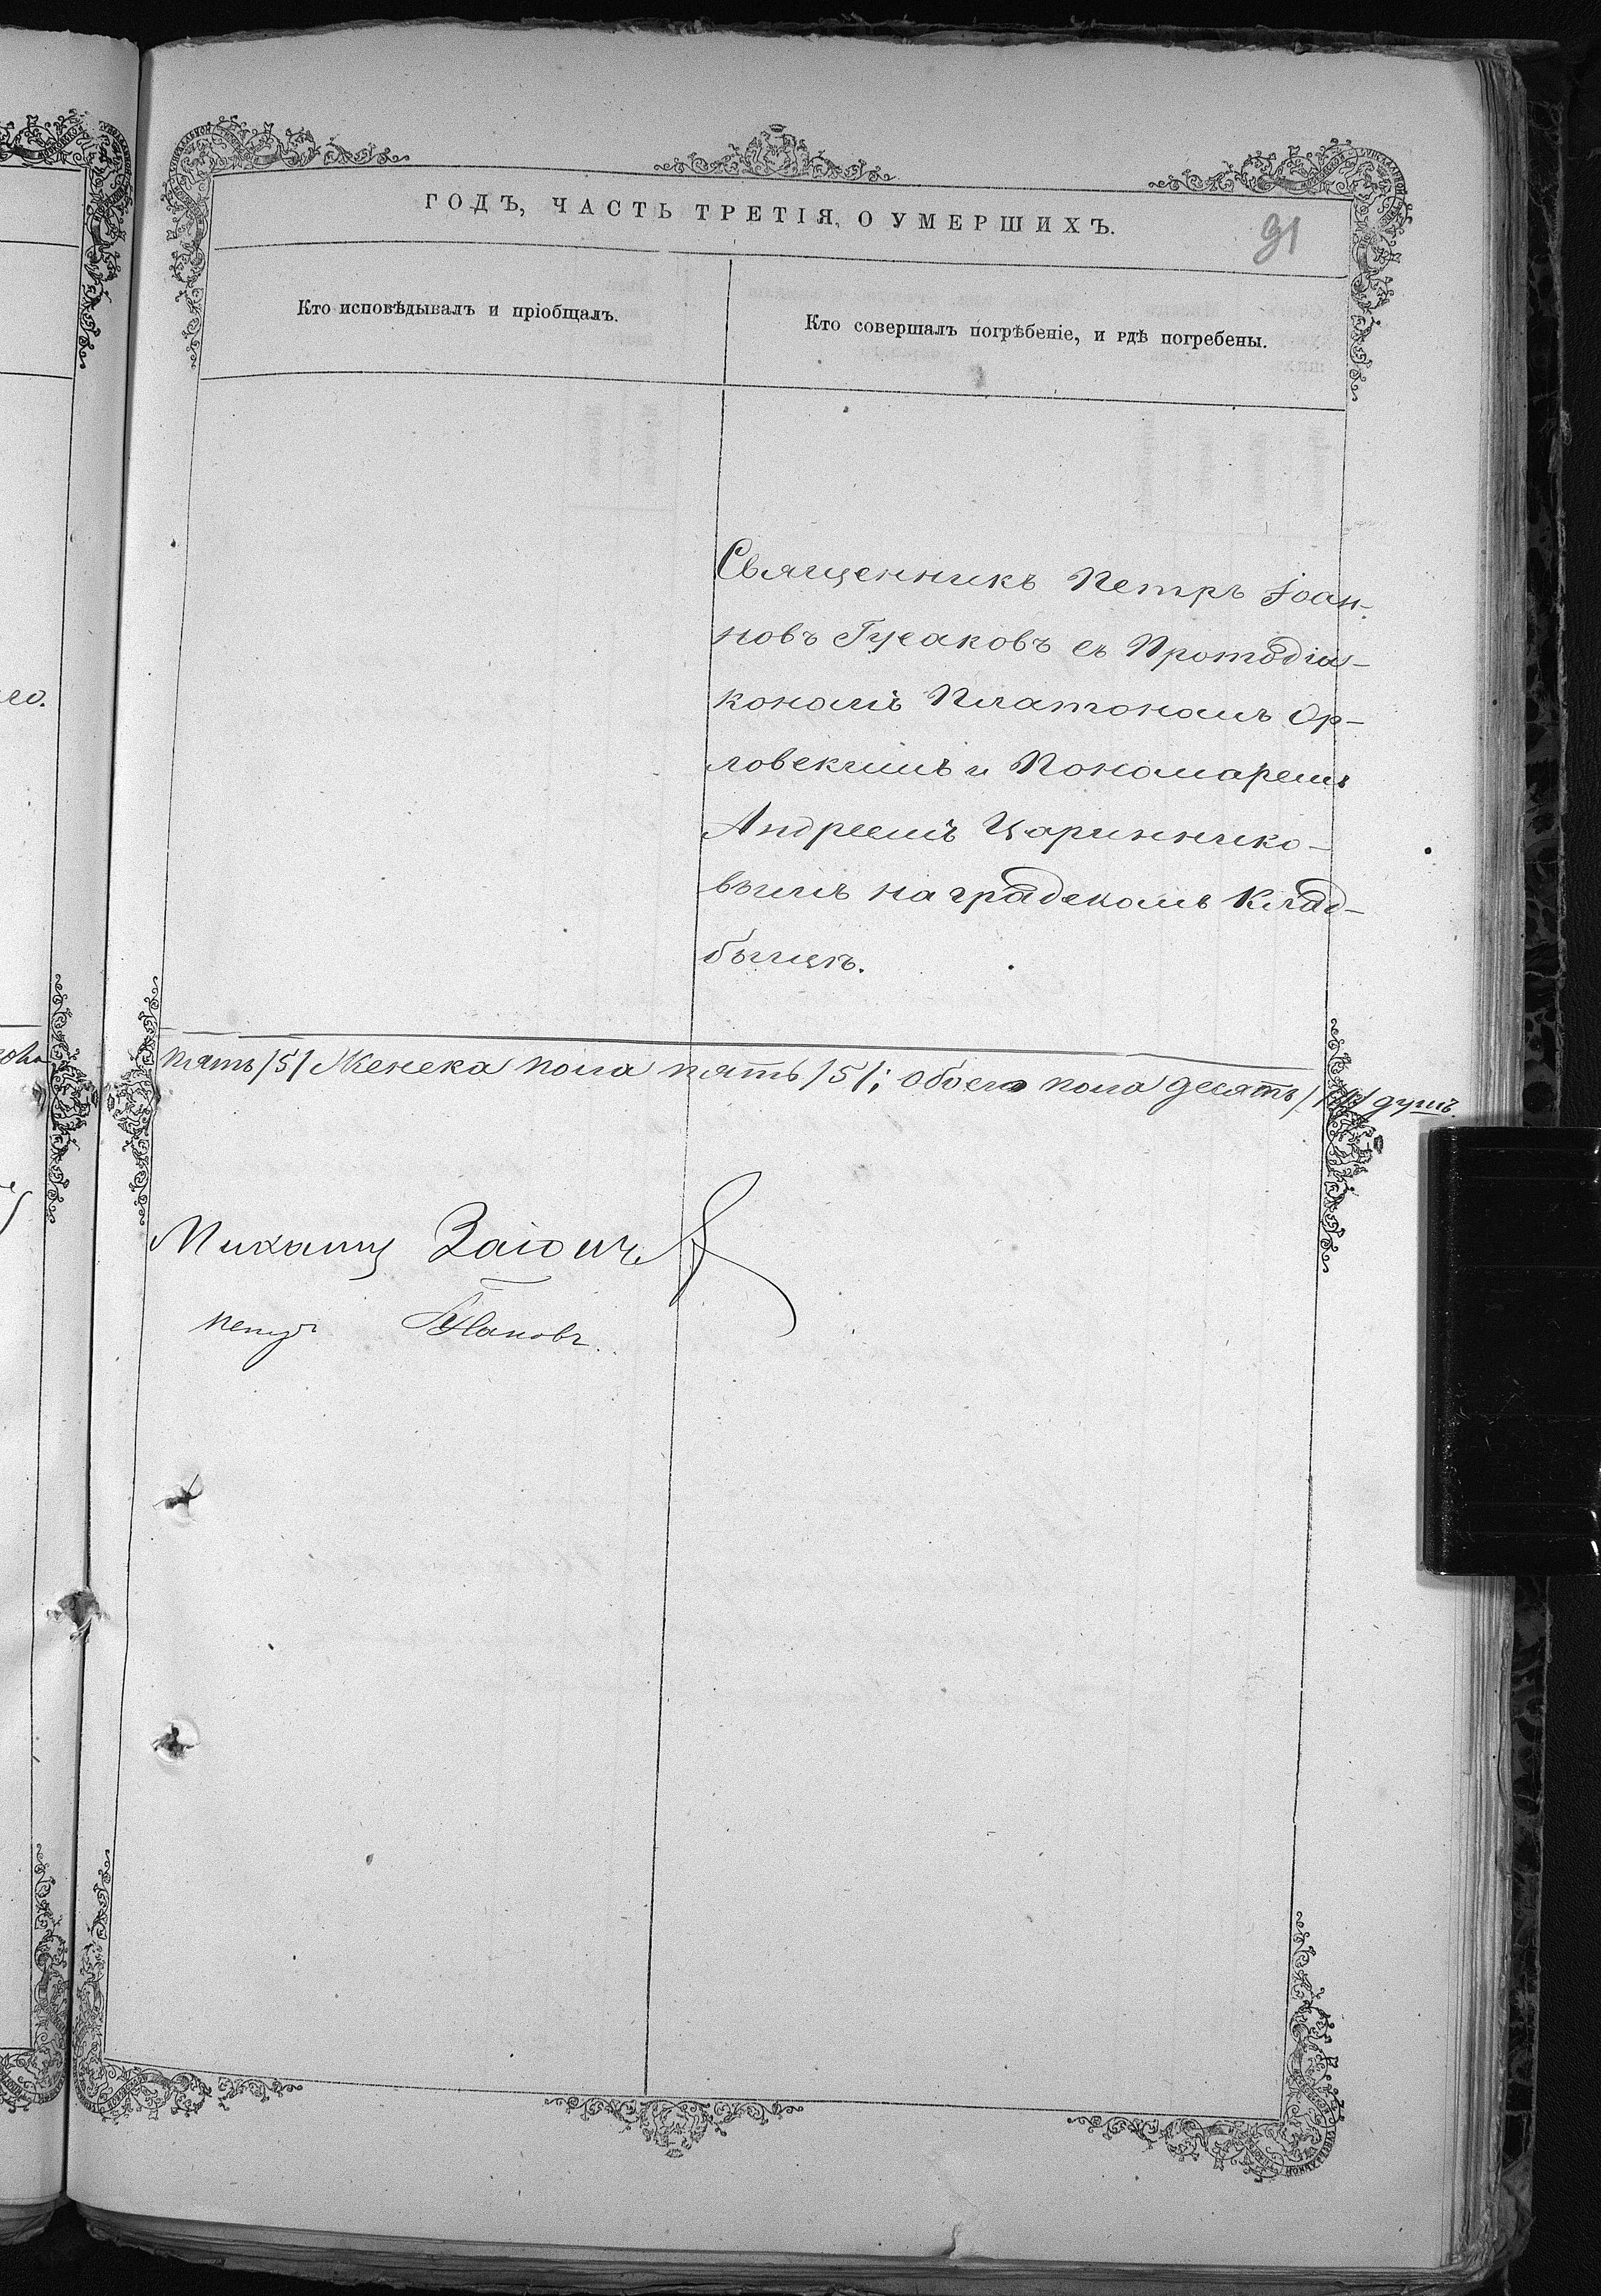 ГОДЪ, ЧАСТЬ ТРЕТІЯ, О УМЕРШИХЪ.
91
Кто исповѣдывалъ и пріобщалъ.
Кто совершалъ погрѣбеніе, и гдѣ погребены.
Священникъ Петръ Іоан-
новъ Гусаковъ съ Протодіа-
кономъ Платономъ Ор-
ловскимъ и Пономаремъ
Андреемъ Цариннико-
вымъ на градскомъ клад-
быщѣ.
пять /5/ Женска пола пять /5/; обоего пола десять /10/ душъ.
Михаилъ
Петръ Гусаковъ.